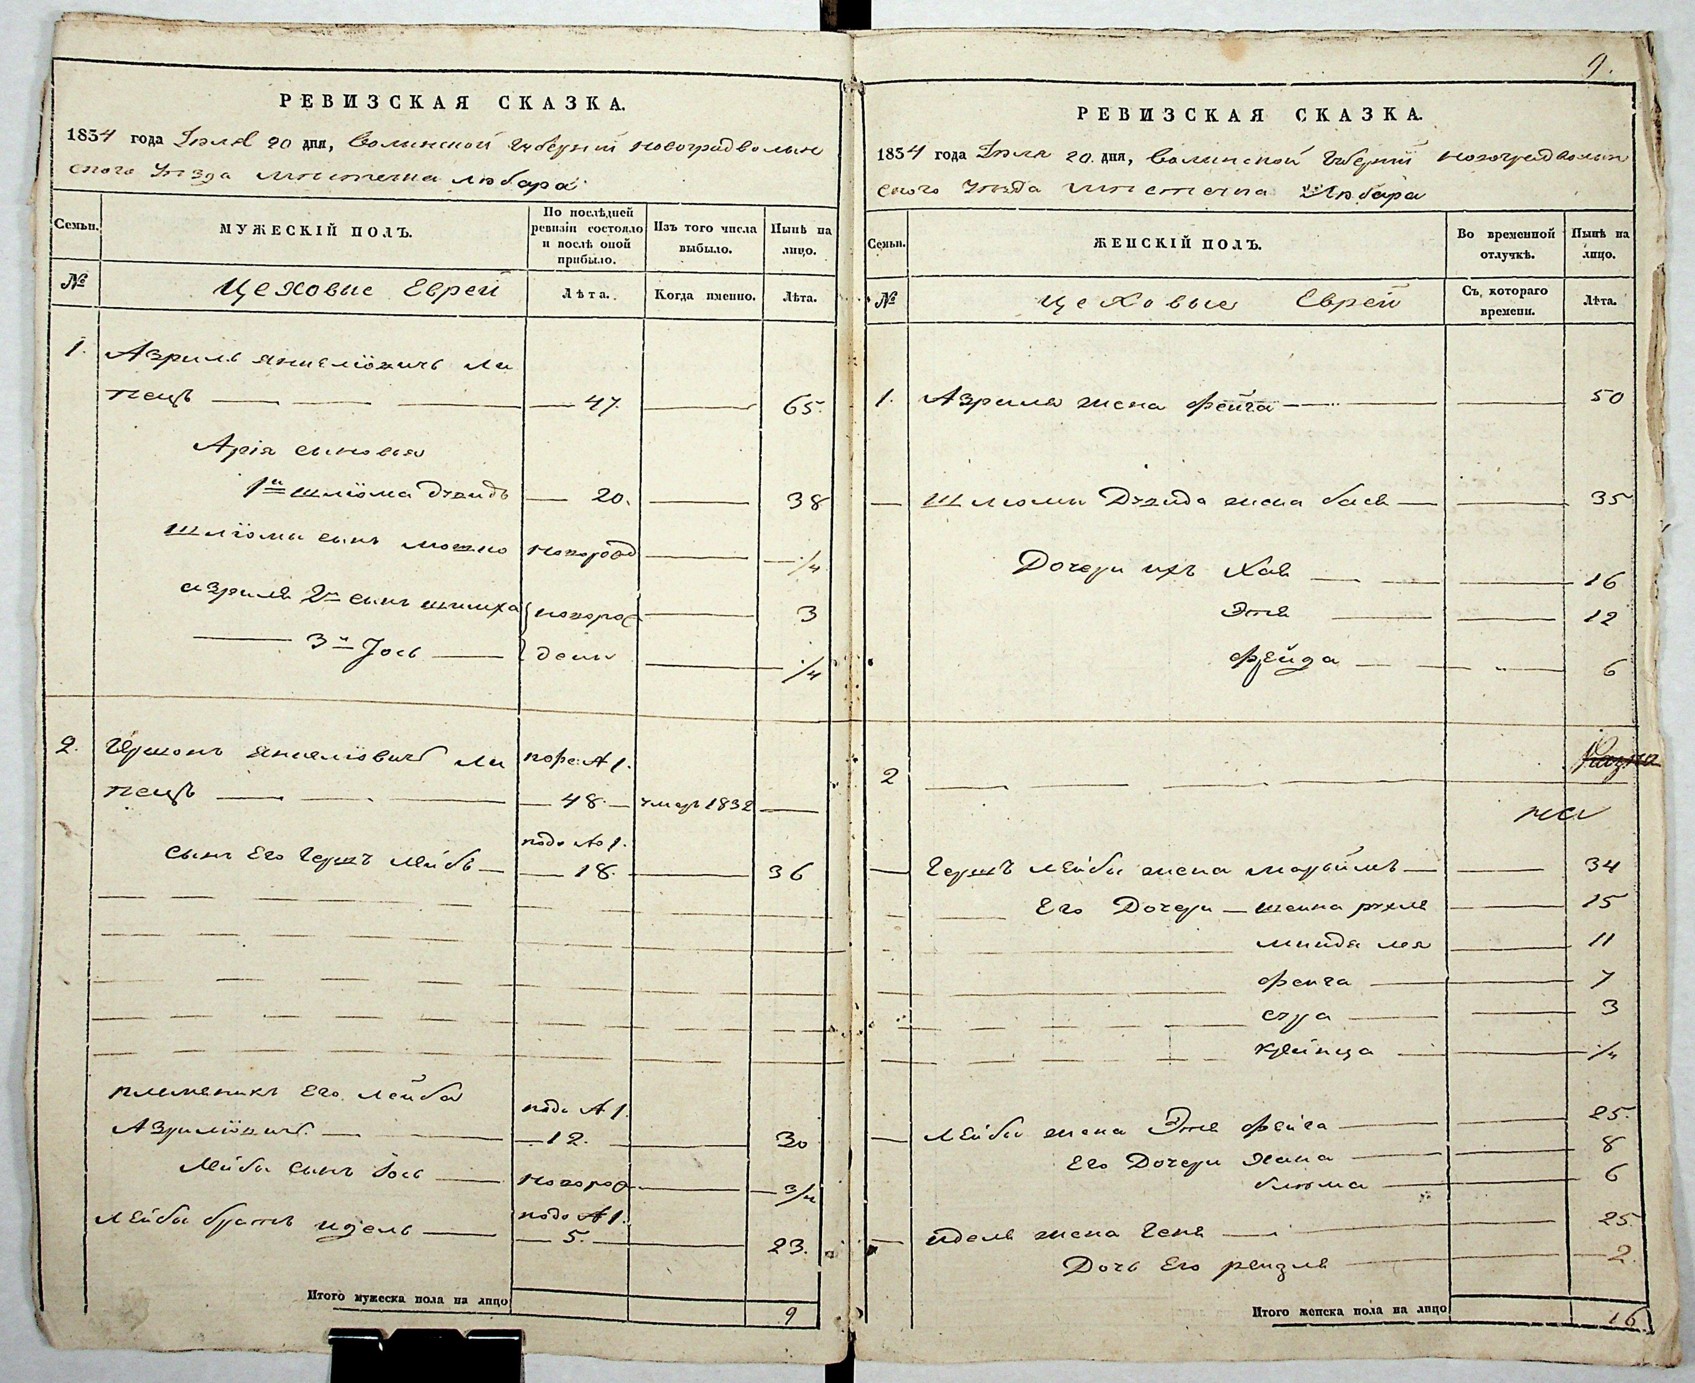 РЕВИЗСКАЯ СКАЗКА.
1834 года Июля 20 дня, Волинской Губерніи Новоградволын
ского уезда мистечка Любара
Семьи.
МУЖЕСКІЙ ПОЛЪ.
По послѣдней ревизіи состояло и послѣ оной прибыло.
Изъ того числа выбыло.
Нынѣ на лицо.
№
Цеховые Еврей
Лѣта.
Когда именно.
Лѣта.
1. Азриль Янкелiовичъ Ли
пецъ 47. 65.
Арія сыновья
1й Шліома Дувидъ 20. 38
Шліомы сынъ Мошко новород 1/4
Азриля 2й сынъ новорож 3
3й Іось дены 1/4
2. Гершонъ Янкеліовичъ Ли
пецъ 48. умеръ 1832
сынъ Его Гершъ Лейбъ 18. 36
племеникъ Его Лейба
Азриліовичъ 12. 30
Лейбы сынъ Іось новорож 3/4
Лейбы братъ Идель 5. 23.
Итого мужеска пола на лицо 9
9.
РЕВИЗСКАЯ СКАЗКА.
1834 года Июля 20 дня, Волинской Губерніи Новоградволын
ского уезда мистечка Любара
Семьи.
ЖЕНСКІЙ ПОЛЪ.
Во временной отлучкѣ.
Нынѣ на лицо.
№
Цеховые Еврей
Съ котораго времени.
Лѣта.
1. Азриля жена Фейга 50
Шлюмы Дувида жена Бася 35
Дочери ихъ Хая 16
Этя 12
Фрейда 6
2
Гершъ Лейбы жена Марьямъ 34
Его Дочери Шейна Рухля 15
Минда Лея 11
Фейга 7
Сура 3
Крейнца 1/4
Лейбы жена Этя Фейга 25.
Его Дочери Хана 8
Блюма 6
Иделя жена Геня 25.
Дочь Его Рейзля 2.
Итого женска пола на лицо 16